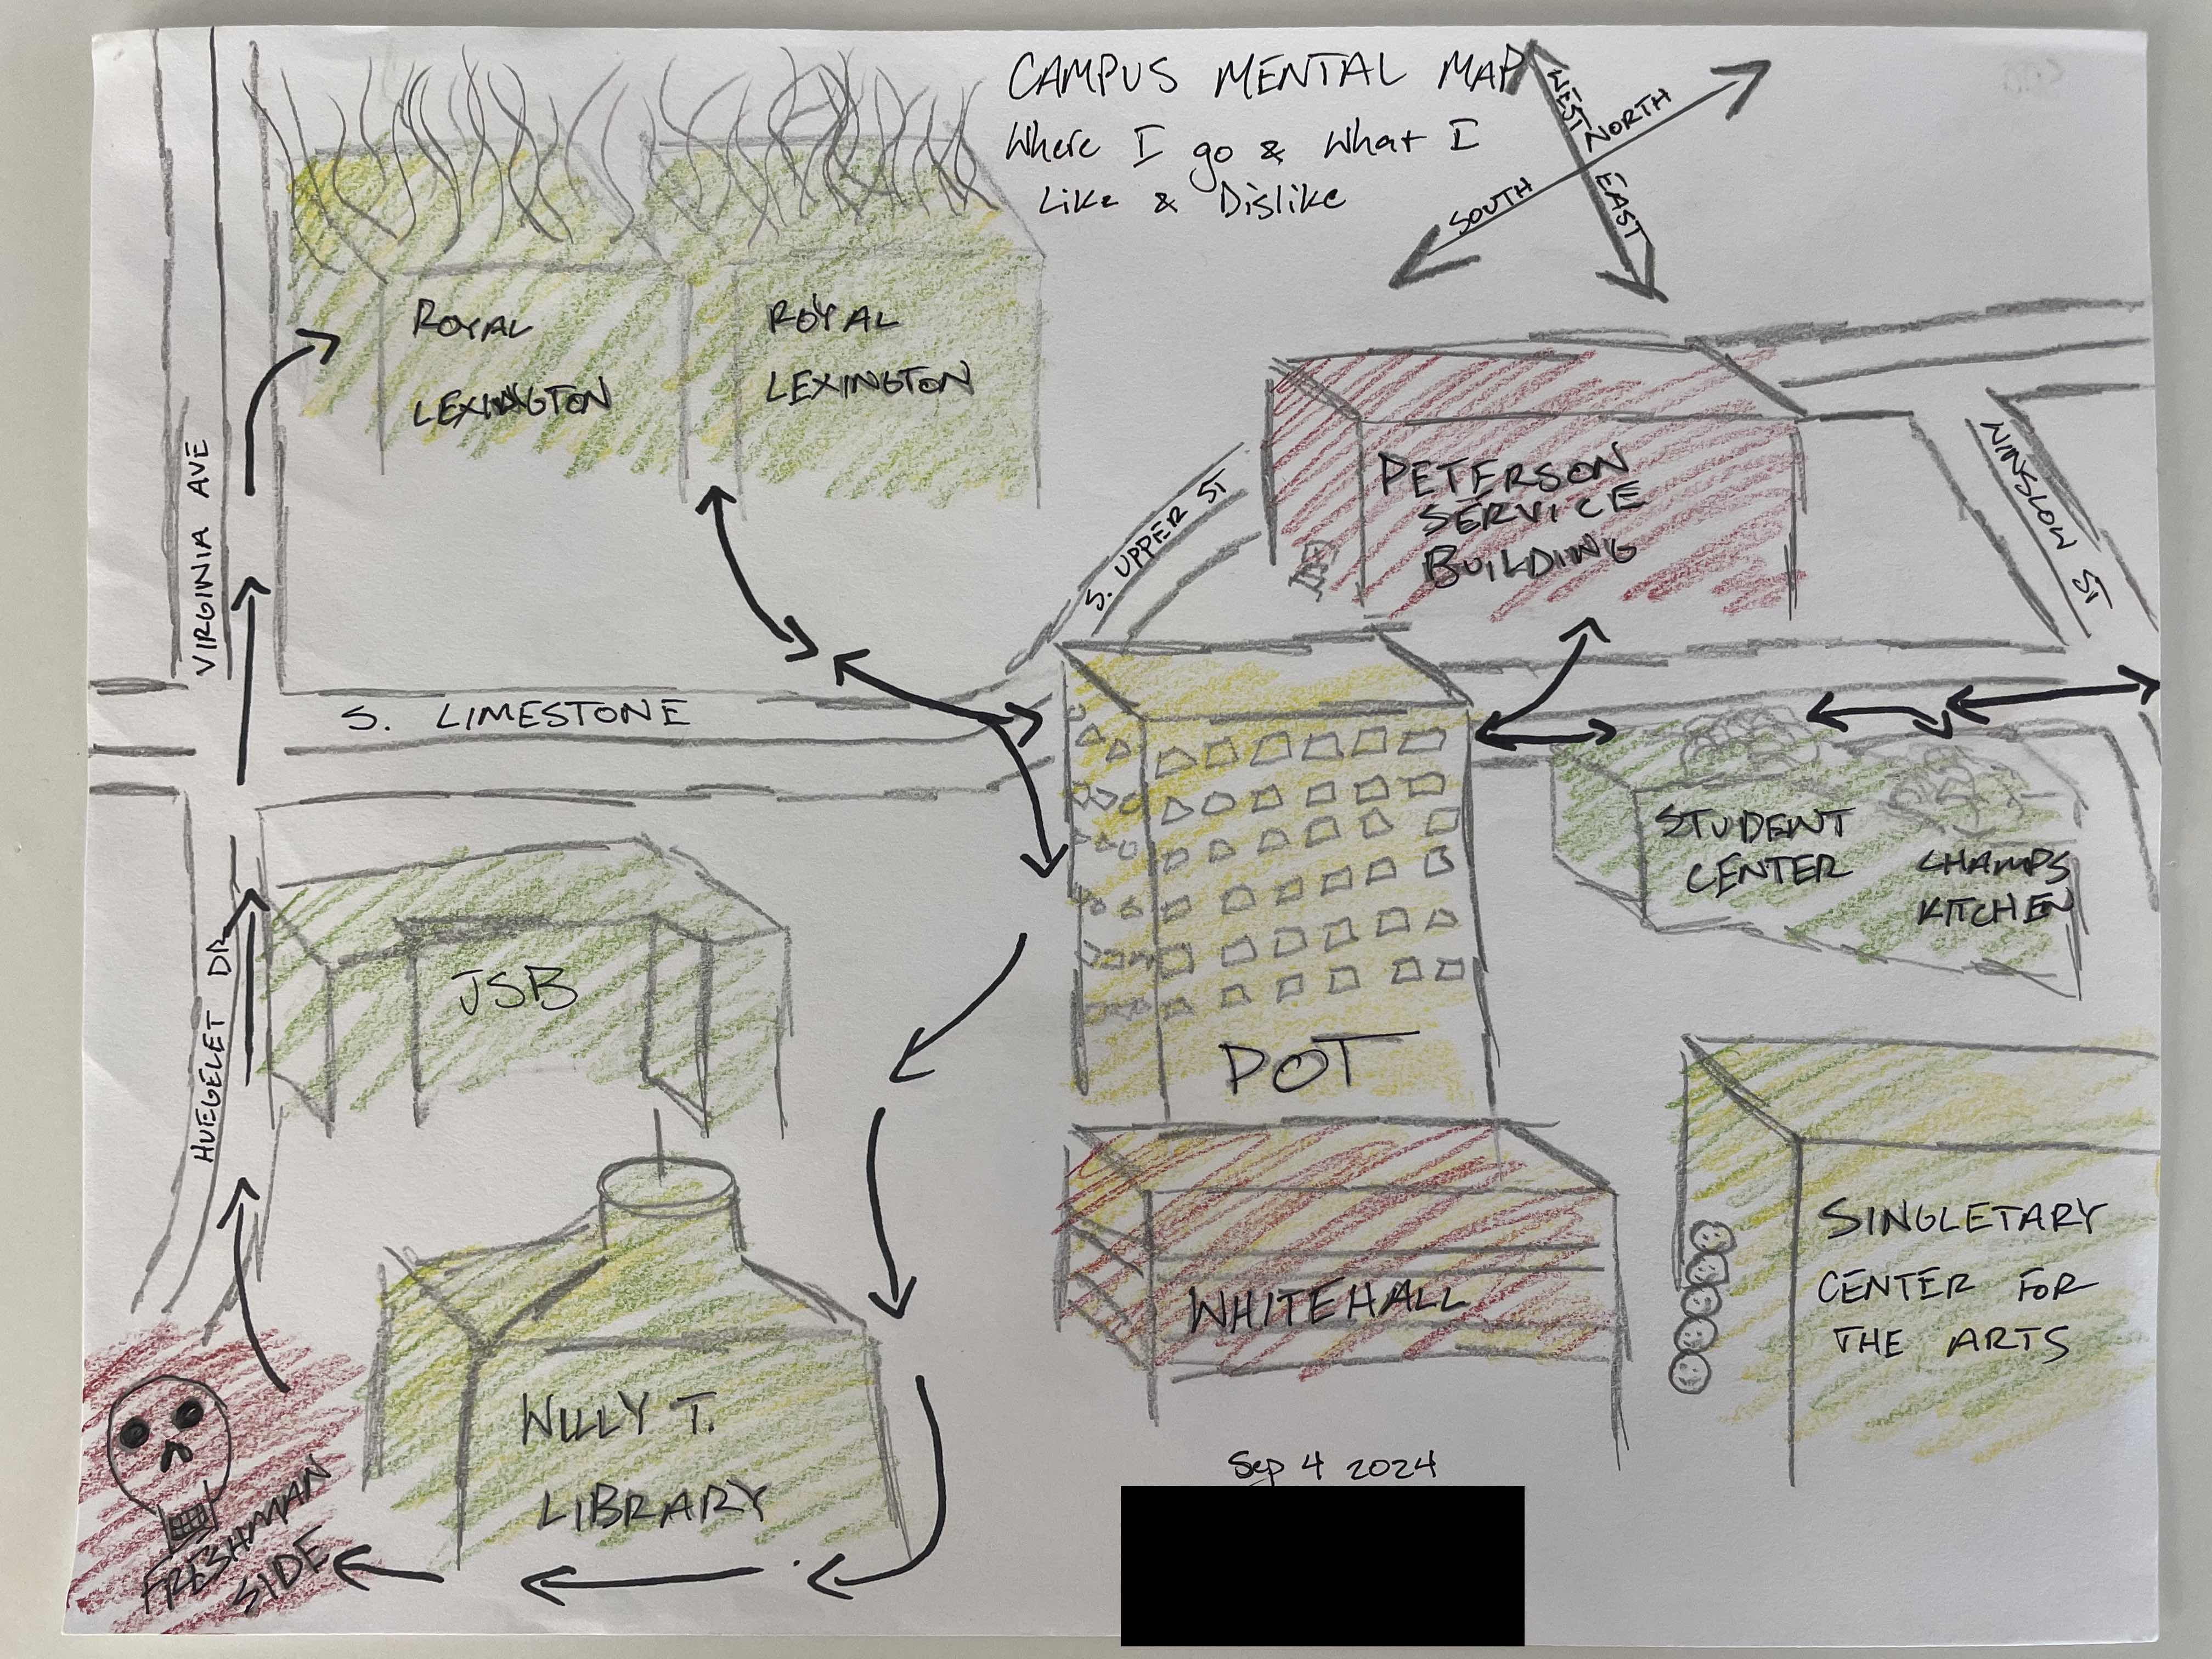 CAMPUS MENTAL MAP
Where I go & what I
Like & Dislike
WEST
NORTH
SOUTH
EAST
ROYAL
LEXINGTON
ROYAL
LEXINGTON
VIRGINIA AVE
S. UPPER ST
PETERSON
SERVICE
BUILDING
WINSLOW ST
S. LIMESTONE
STUDENT
CENTER
CHAMPS
KITCHEN
HUEGELET DR
JSB
POT
WHITEHALL
SINGLETARY
CENTER FOR
THE ARTS
WILLY T.
LIBRARY
FRESHMAN
SIDE
Sep 4 2024